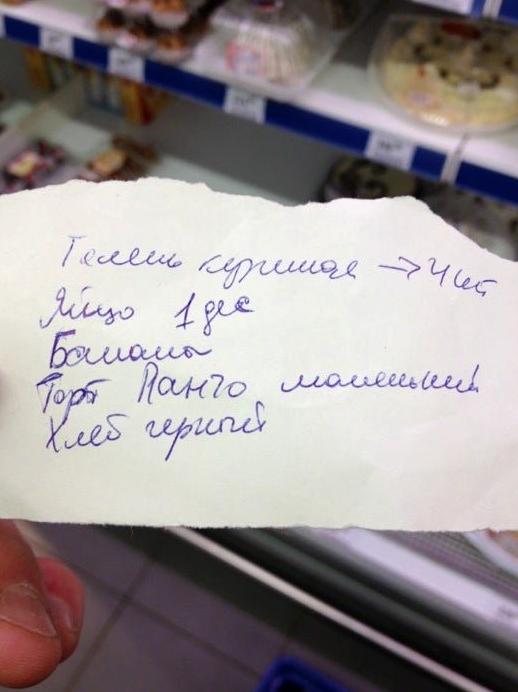 Голень куриная → 4 шт
Яйцо 1 дес
Бананы
Торт Панчо маленький
Хлеб черный